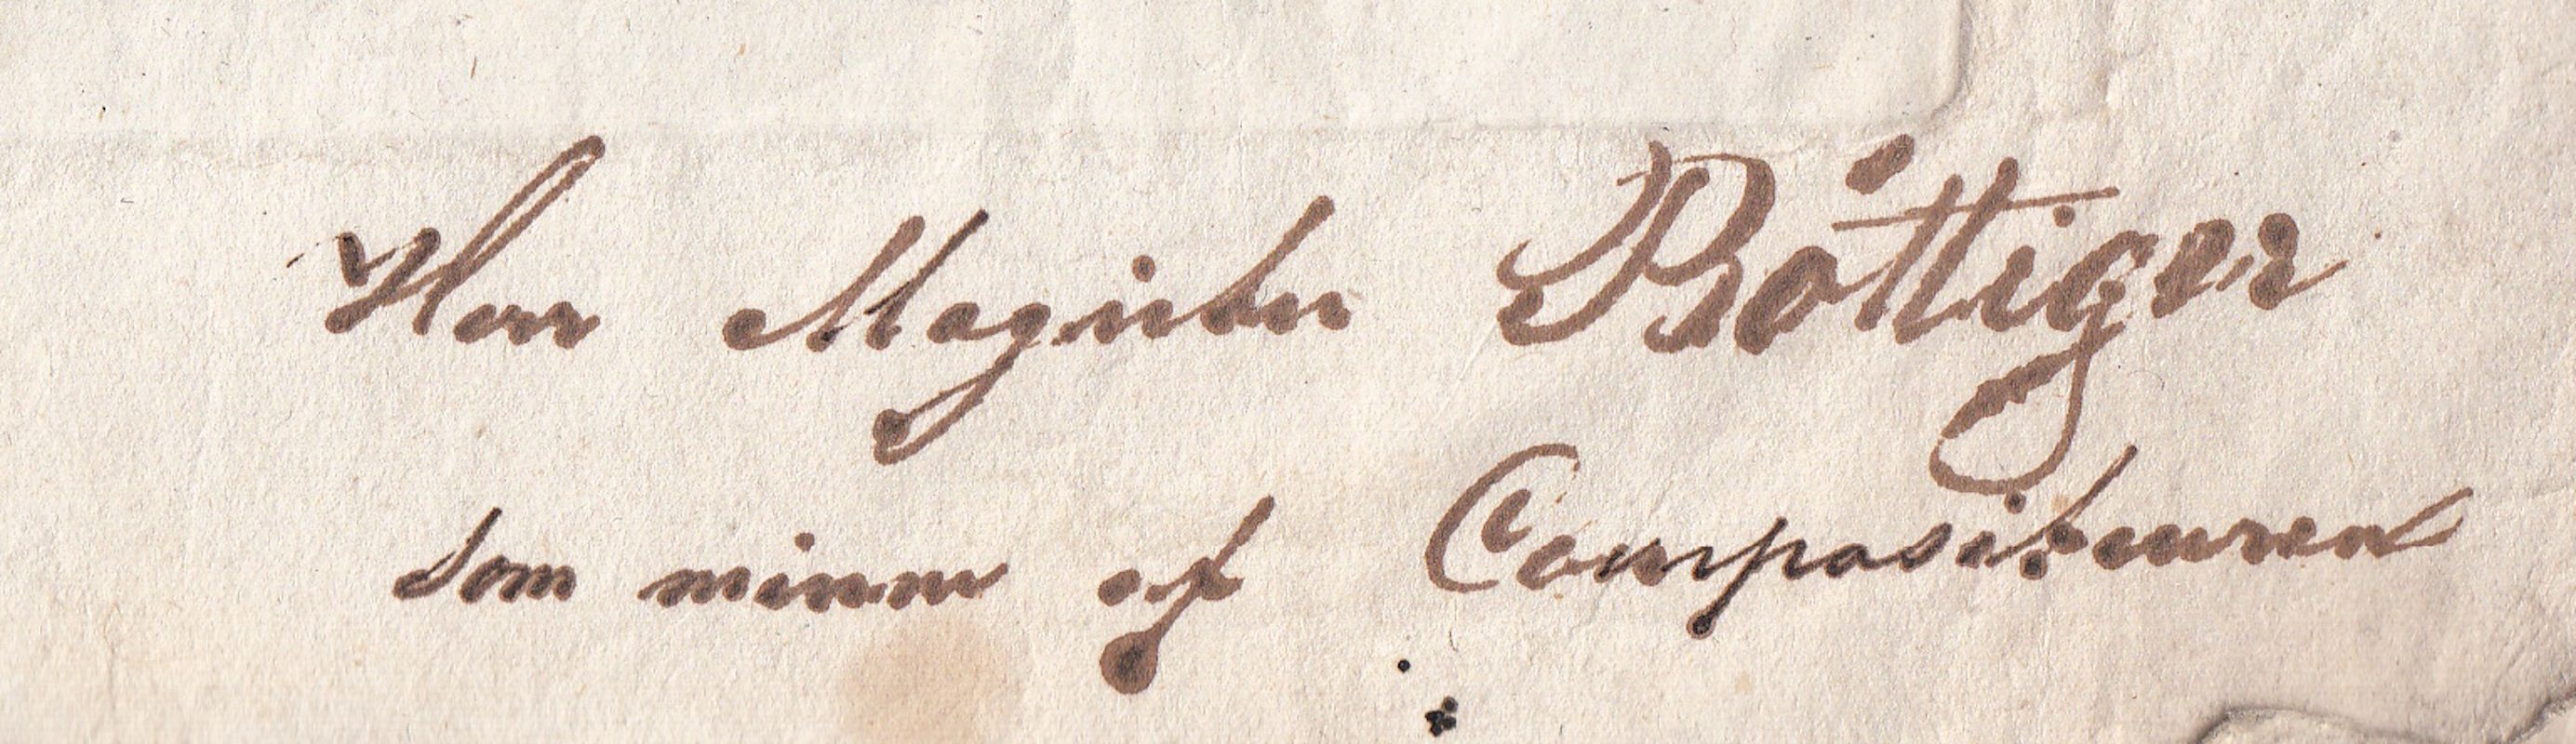 Herr Magister Böttiger
som minne af Compositeuren